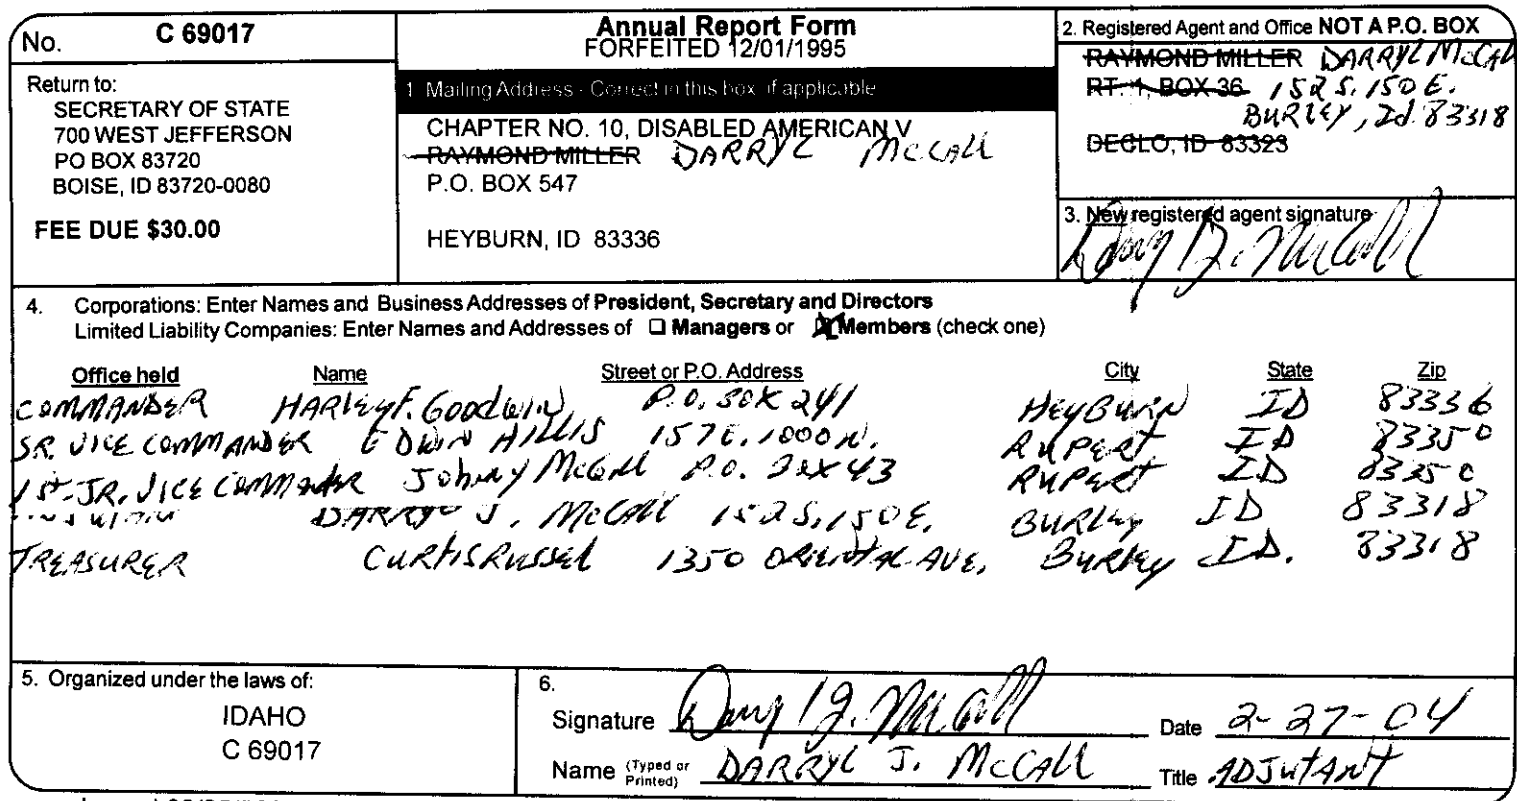 No. C 69017
Return to:
SECRETARY OF STATE
700 WEST JEFFERSON
PO BOX 83720
BOISE, ID 83720-0080
FEE DUE $30.00
Annual Report Form
FORFEITED 12/01/1995
1 Mailing Address - Correct in this box if applicable
CHAPTER NO. 10, DISABLED AMERICAN V
RAYMOND MILLER DARRYL McCALL
P.O. BOX 547
HEYBURN, ID 83336
2. Registered Agent and Office NOT A P.O. BOX
RAYMOND MILLER DARRYL McCALL
RT. 1, BOX 36 152 S. 150 E.
BURLEY, Id. 83318
DECLO, ID 83323
3. New registered agent signature
Darryl J. McCall
4. Corporations: Enter Names and Business Addresses of President, Secretary and Directors
Limited Liability Companies: Enter Names and Addresses of ☐ Managers or ☒ Members (check one)
Office held Name Street or P.O. Address City State Zip
COMMANDER HARLEY F. GOODWIN P.O. BOX 241 HEYBURN ID 83336
SR. VICE COMMANDER EDWIN HILLIS 157 E. 1000 N. RUPERT ID 83350
1st-JR. VICE COMMANDER JOHNY McCALL P.O. BOX 43 RUPERT ID 83350
DARRYL J. McCALL 152 S. 150 E. BURLEY ID 83318
TREASURER CURTIS RUSSEL 1350 ORIENTAL AVE. BURLEY ID. 83318
5. Organized under the laws of:
IDAHO
C 69017
6.
Signature Darryl J. McCall Date 2-27-04
Name (Typed or Printed) DARRYL J. McCALL Title ADJUTANT